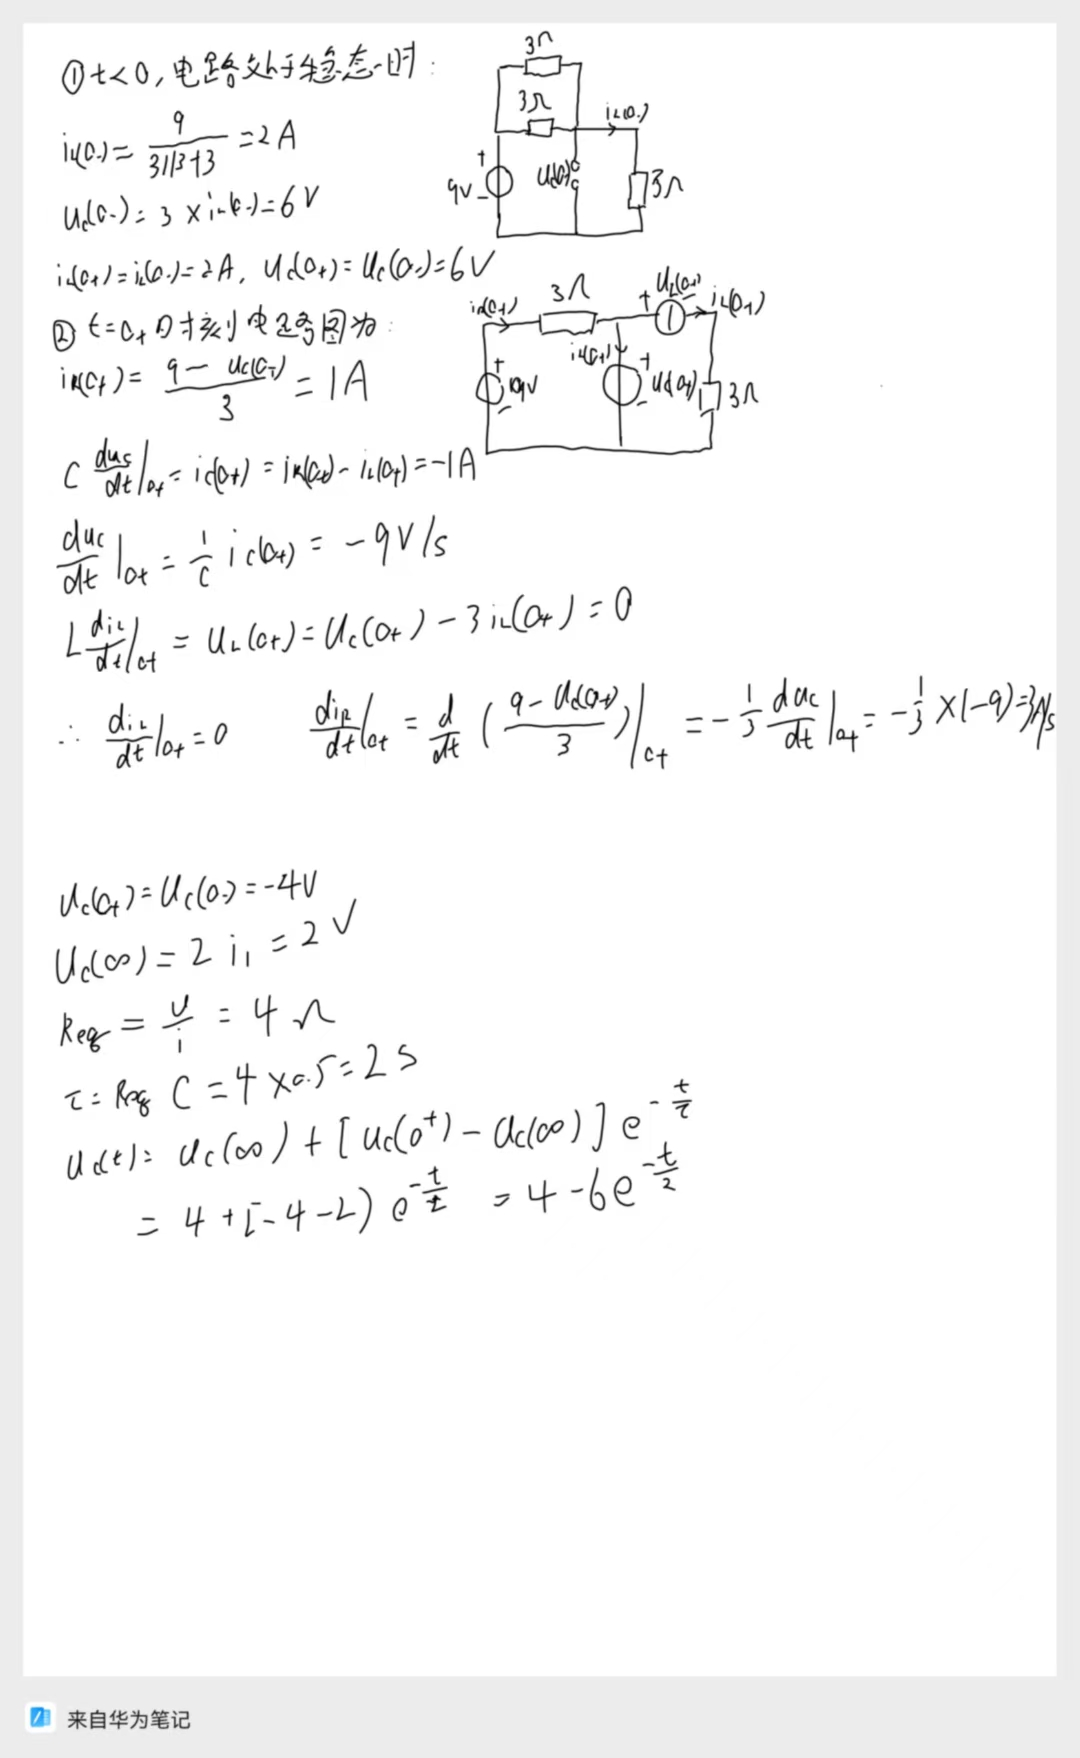 ①t<0,电路处于稳态时:
3Ω
3Ω
iL(0-)
iL(0-)=9/(3//3+3)=2A
9V
+
-
Uc(0-)
3Ω
Uc(0-)=3×iL(0-)=6V
iL(0+)=iL(0-)=2A, Uc(0+)=Uc(0-)=6V
②t=0+时刻电路图为:
iR(0+)
3Ω
+
UL(0+)
-
iL(0+)
ic(0+)
+
9V
-
+
Uc(0+)
-
3Ω
iR(0+)=(9-Uc(0+))/3=1A
C duc/dt|0+=ic(0+)=iR(0+)-iL(0+)=-1A
duc/dt|0+=1/C ic(0+)=-9V/s
L diL/dt|0+=UL(0+)=Uc(0+)-3iL(0+)=0
∴ diL/dt|0+=0 diR/dt|0+=d/dt((9-Uc(0+))/3)|0+=-1/3 duc/dt|0+=-1/3×(-9)=3A/s
Uc(0+)=Uc(0-)=-4V
Uc(∞)=2i1=2V
Req=U/i=4Ω
τ=Req C=4×0.5=2S
Uc(t)=Uc(∞)+[Uc(0+)-Uc(∞)]e^-t/τ
=4+[-4-2)e^-t/τ=4-6e^-t/2
来自华为笔记